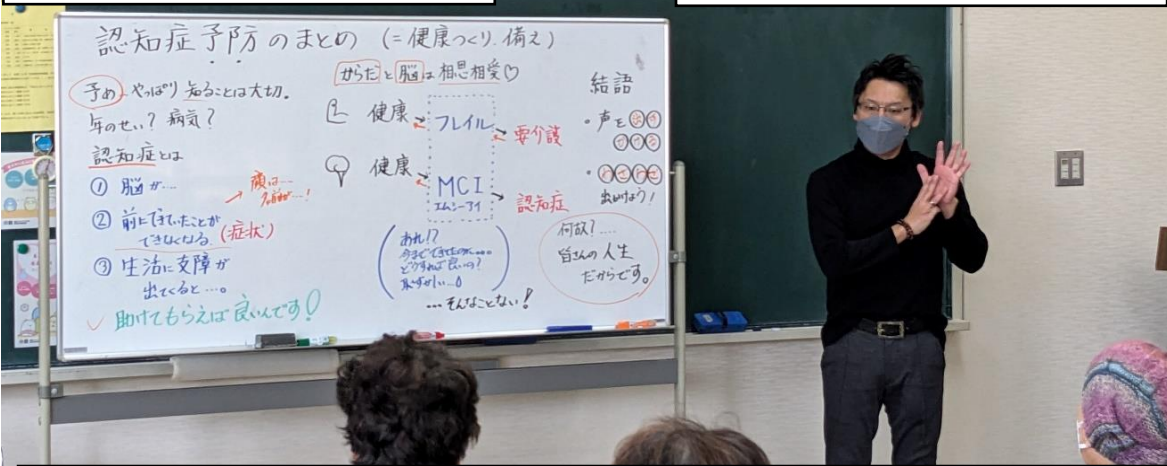 認知症予防のまとめ (=健康つくり、備え)
予め やっぱり 知ることは大切。
年のせい? 病気?
認知症とは
① 脳が…
② 前にできていたことが
できなくなる。(症状)
→ 顔は…
名前が…!
③ 生活に支障が
出てくると…。
✓ 助けてもらえば良いんです!
からだと脳は相思相愛♡
健康 フレイル 要介護
健康 MCI 認知症
エムシーアイ
あれ!?
今までできてたのに…
どうすれば良いの?
恥ずかしい…。
…そんなことない!
結語
・声を
出かけよう!
何故?…
皆さんの人生
だからです。